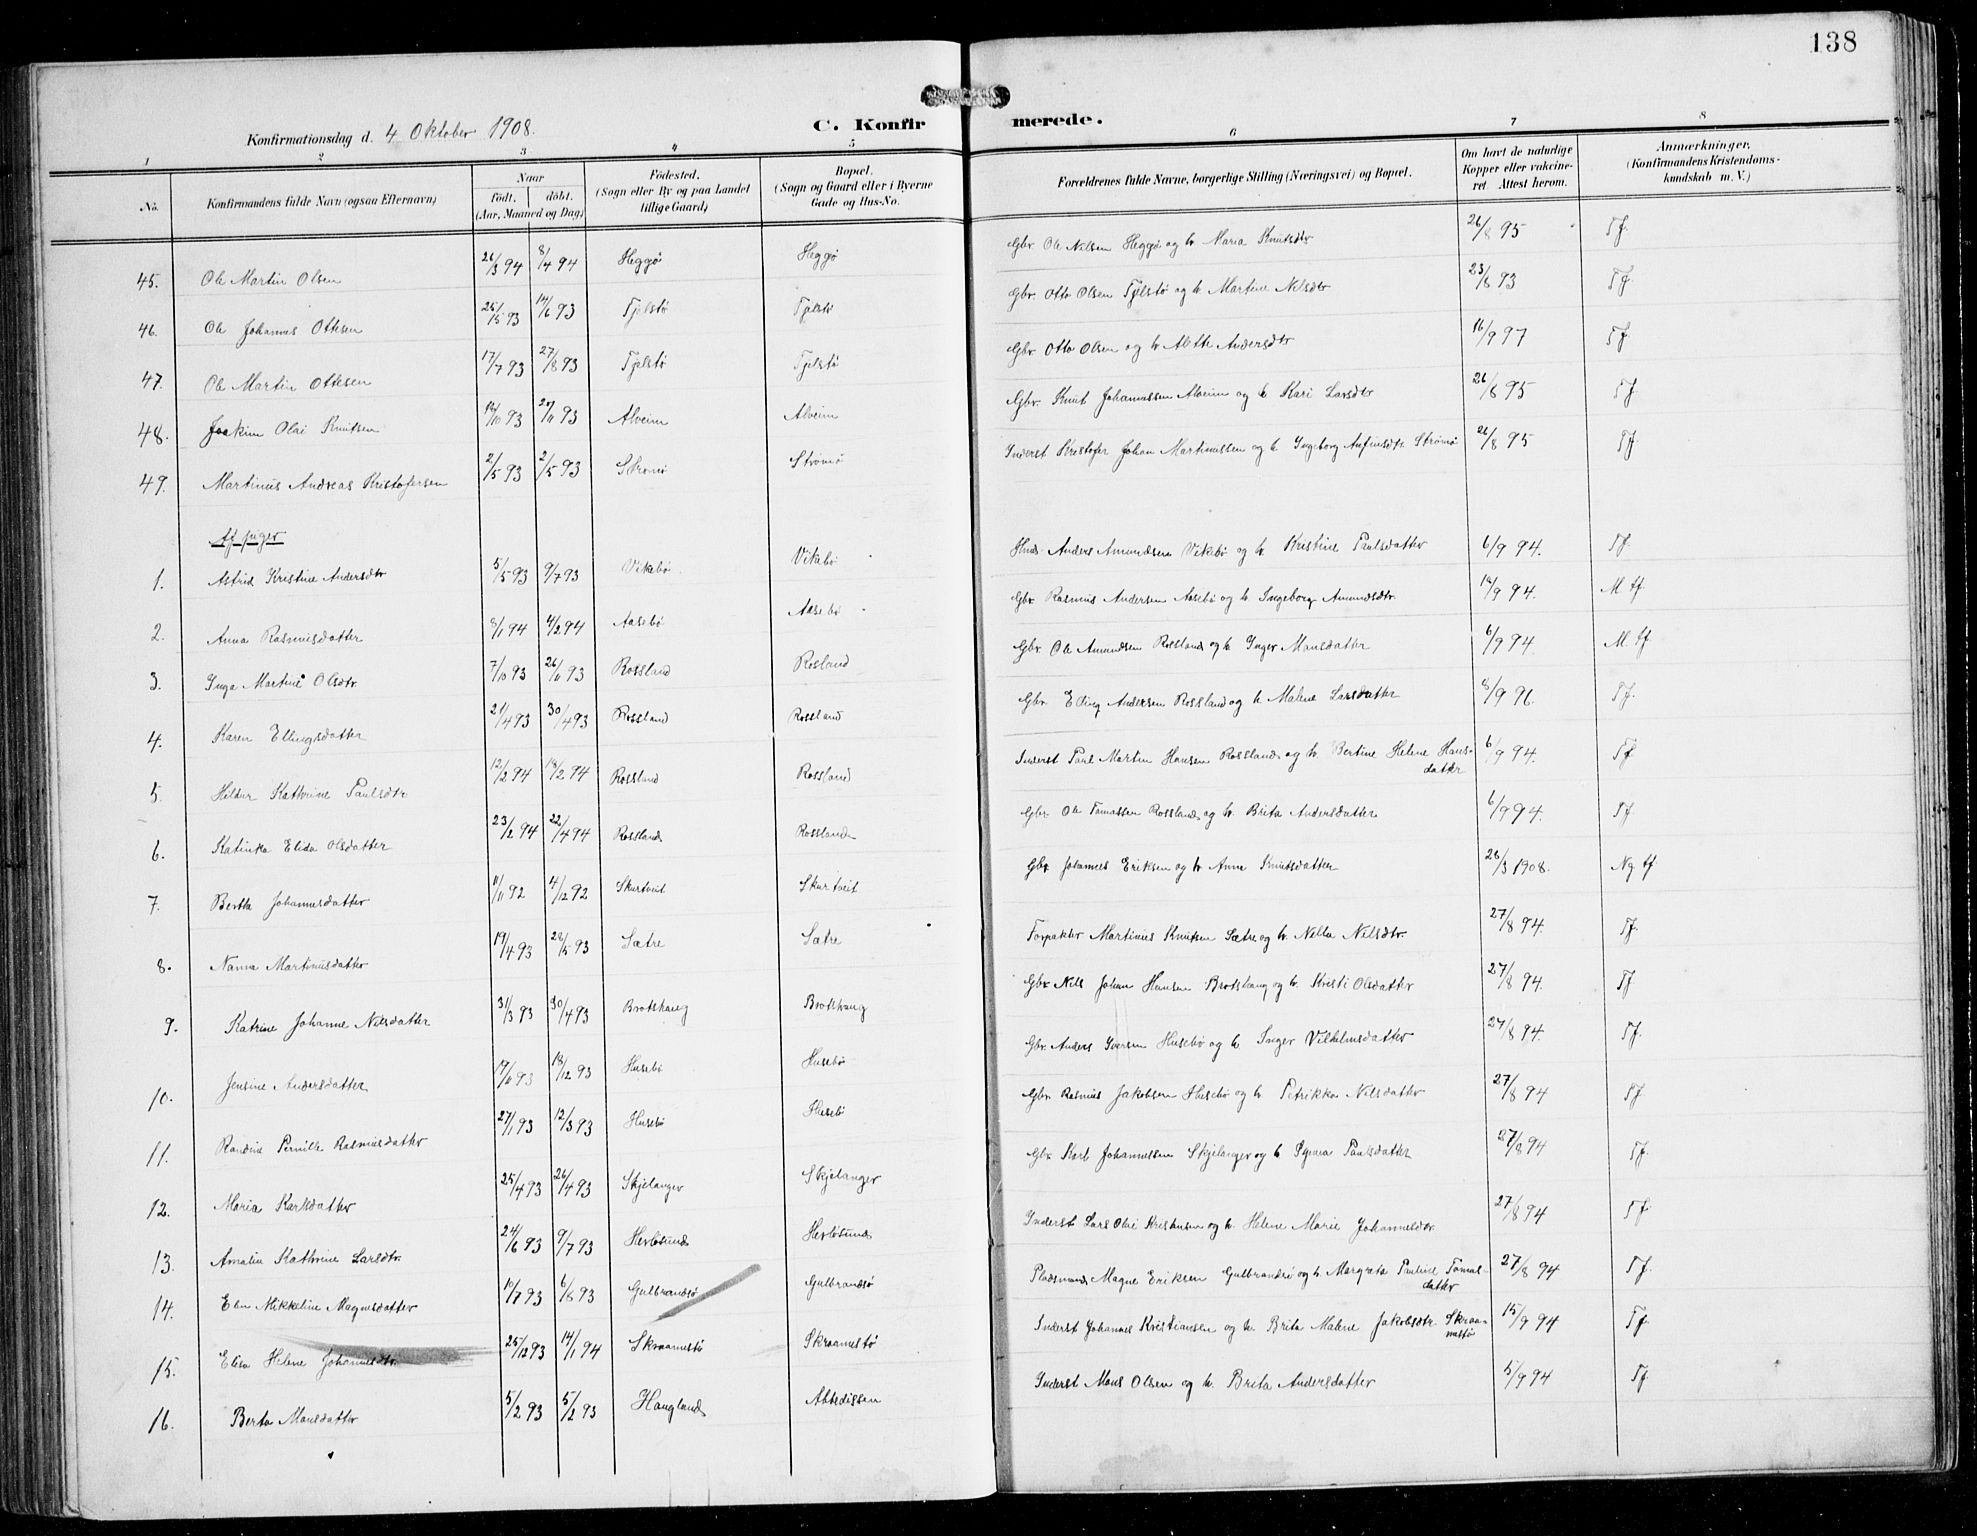 138
C. Konfirmerede.
Konfirmationsdag d. 4 Oktober 1908.
1 2 3 4 5 6 7 8
No. Konfirmandens fulde Navn (ogsaa Efternavn) Naar födt. döbt. (Aar, Maaned og Dag) Födested. (Sogn eller By og paa Landet tillige Gaard) Bopæl. (Sogn og Gaard eller i Byerne Gade og Hus-No. Forældrenes fulde Navne, borgerlige Stilling (Næringsvei) og Bopæl. Om havt de naturlige Kopper eller vakcineret Attest herom. Anmærkninger, (Konfirmandens Kristendomskundskab m. V.)
45. Ole Martin Olsen 26/3 94 8/4 94 Heggö Heggö Gbr. Ole Nilsen Heggö og h. Maria Knutsdtr 26/8 95 Tf.
46. Ole Johannes Ottesen 25/5 93 14/6 93 Tjelstö Tjelstö Gbr. Otto Olsen Tjelstö og h. Martine Nilsdtr 23/8 93 Tf
47. Ole Martin Ottesen 17/7 93 27/8 93 Tjelstö Tjelstö Gbr. Otto Olsen og h. Andersdtr 16/9 97 Tf
48. Joakim Olai Knutsen 93 93 Alveim Alveim Gbr. Knut Johannessen Alveim og h. Kari Larsdtr 26/8 95 Tf
49. Martinus Andreas Kristofersen 2/5 93 2/5 93 Strömö Strömö Inderst Kristofer Johan Martinussen og h. Ingeborg Anfinsdtr. Strömö 26/8 95 Tf
Af piger
1. Astrid Kristine Andersdtr 5/5 93 9/7 93 Vikebö Vikebö Anders Amundsen Vikebö og h. Kristine Paulsdatter 6/9 94. Tf
2. Anna Rasmusdatter 8/1 94 4/2 94 Aasebö Aasebö Gbr. Rasmus Andersen Aasebö og h. Ingeborg Amundsdtr. 14/9 94. M tf
3. Inga Martine Olsdtr. 7/10 93 93 Rossland Rosland Gbr. Ole Amundsen Rossland og h. Inger Monsdatter 6/9 94. M. tf
4. Karen Ellingsdatter 21/4 93 30/4 93 Rossland Rossland Gbr. Elling Andersen Rossland og h. Malene Larsdatter 8/9 96. Tf.
5. Hildur Kathrine Paulsdtr 12/2 94 18/2 94 Rossland Rossland Inderst Paul Martin Hansen Rossland og h. Bertine Helene Hansdatter 6/9 94. Tf
6. Katinka Elida Olsdatter 23/2 94 22/4 94 Rossland Rossland Gbr. Ole Tomassen Rossland og h. Brita Andersdatter 6/9 94. Tf
7. Bertha Johannesdatter 11/11 92 4/12 92 Skurtveit Skurtveit Gbr Johannes Eriksen og h Anna Knutsdatter 28/3 1908. Ng tf
8. Nanna Martinusdatter 19/4 93 28/5 93 Sætre Sætre Forpakter Martinus Knutsen Sætre og h. Nella Nilsdtr. 27/8 94. Tf.
9. Katrine Johanne Nilsdatter 31/3 93 30/4 93 Brotshaug Brotshaug Gbr. Nils Johan Hansen Brotshaug og h. Kristi Olsdatter 27/8 94. Tf
10. Jensine Andersdatter 93 18/12 93 Husebö Husebö Gbr. Anders Iversen Husebö og h. Inger Vilhelmsdatter 27/8 94. Tf.
11. Randine Pernille Rasmusdatter 27/1 93 12/3 93 Husebö Husebö Gbr. Rasmus Jakobsen Husebö og h. Petrikka Nilsdatter 27/8 94 Tf
12. Maria Karlsdatter 25/4 93 26/4 93 Skjelanger Skjelanger Gbr Karl Johannessen Skjelanger og h Paulsdatter 27/8 94 Tf.
13. Amalia Kathrine Larsdtr. 24/6 93 9/7 93 Herlösund Herlösund Inderst Lars Olai og h. Helene Marie Johannesdtr. 27/8 94 Tf.
14. Elen Nikkeline Magnesdatter 7 93 6/8 93 Gulbrandsö Gulbrandsö Pladsmand Magne Eriksen Gulbrandsö og h. Margrete Pauline Tomasdatter 27/8 94 Tf.
15. Elisa Helene Johannesdtr. 25/12 93 14/1 94 Skraamestö Skraamestö Inderst Johannes Kristiansen og h. Brita Malene Jakobsdtr Skraamestö 15/9 94 Tf.
16. Berta Monsdatter 5/2 93 5/2 93 Haugland Abbedissen Inderst Mons Olsen og h. Brita Andersdatter 5/9 94 Tf